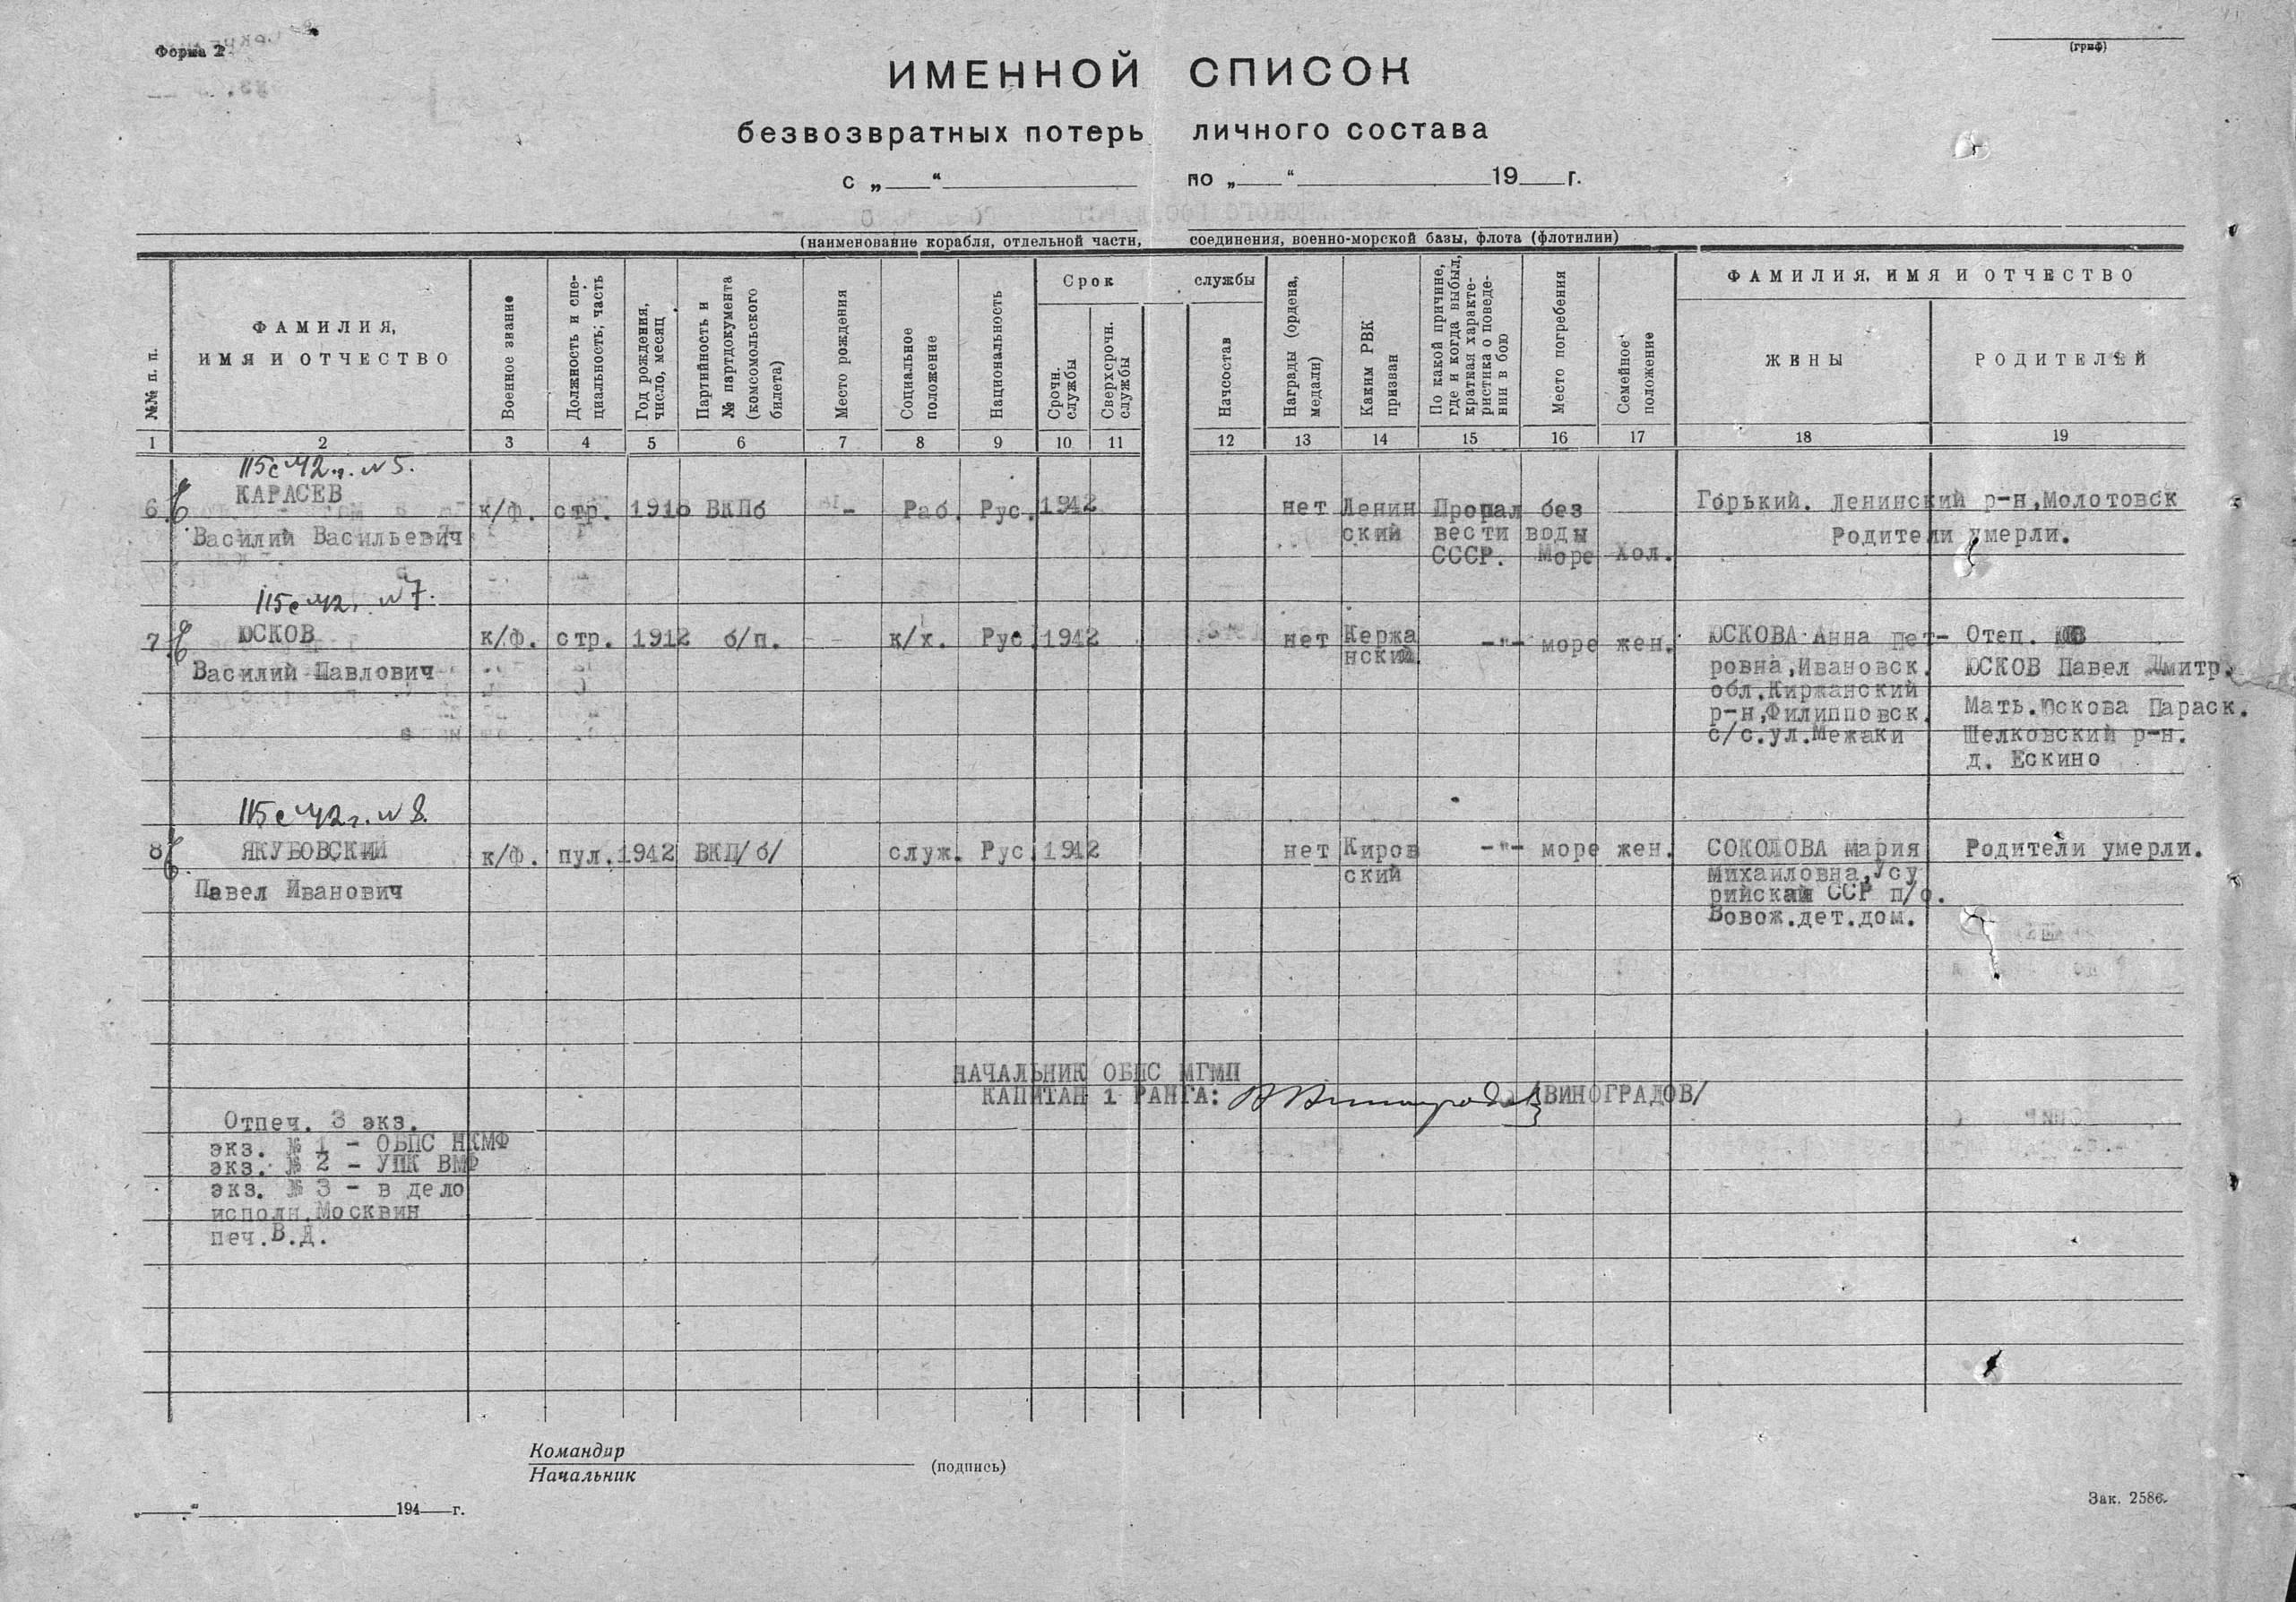 Форма 2
(гриф)
ИМЕННОЙ СПИСОК
безвозвратных потерь личного состава
с „ “ по „ “ 19 г.
(наименование корабля, отдельной части, соединения, военно-морской базы, флота (флотилии)
№№ п. п.
ФАМИЛИЯ,
ИМЯ И ОТЧЕСТВО
Военное звание
Должность и спе-
циальность; часть
Год рождения,
число, месяц
Партийность и
№ партдокумента
(комсомольского
билета)
Место рождения
Социальное
положение
Национальность
Срок службы
Срочн.
службы
Сверхсрочн.
службы
Начсостав
Награды (ордена,
медали)
Каким РВК
призван
По какой причине,
где и когда выбыл,
краткая характе-
ристика о поведе-
нии в бою
Место погребения
Семейное
положение
ФАМИЛИЯ, ИМЯ И ОТЧЕСТВО
ЖЕНЫ
РОДИТЕЛЕЙ
1 2 3 4 5 6 7 8 9 10 11 12 13 14 15 16 17 18 19
115с 42г. №5.
КАРАСЕВ
6 к/ф. стр. 1916 ВКПб - Раб. Рус. 1942 нет Ленин Пропал без Горький. Ленинский р-н, Молотовск
Василий Васильевич ский вести воды Родители умерли.
СССР. Море Хол.
115с 42г. №7.
7 ЮСКОВ к/ф. стр. 1912 б/п. -- к/х. Рус. 1942 нет Кержа -"- море жен. ЮСКОВА Анна пет- Отец.
нский
Василий Павлович ровна, Ивановск. ЮСКОВ Павел Дмитр.
обл. Киржанский
р-н, Филипповск. Мать. Юскова Параск.
с/с. ул. Межаки Щелковский р-н.
д. Ескино
115с 42г. №8.
8 ЯКУБОВСКИЙ к/ф. пул. 1942 ВКП/б/ служ. Рус. 1942 нет Киров -"- море жен. СОКОЛОВА Мария Родители умерли.
ский Михайловна, Усу
Павел Иванович рийская ССР п/о.
Вовож. дет. дом.
НАЧАЛЬНИК ОБПС МГМП
КАПИТАН 1 РАНГА: /ВИНОГРАДОВ/
Отпеч. 3 экз.
экз. № 1 - ОБПС НКМФ
экз. № 2 - УПК ВМФ
экз. № 3 - в дело
исполн. Москвин
печ. В.Д.
Командир
Начальник
(подпись)
„ “ 194 г.
Зак. 2586.